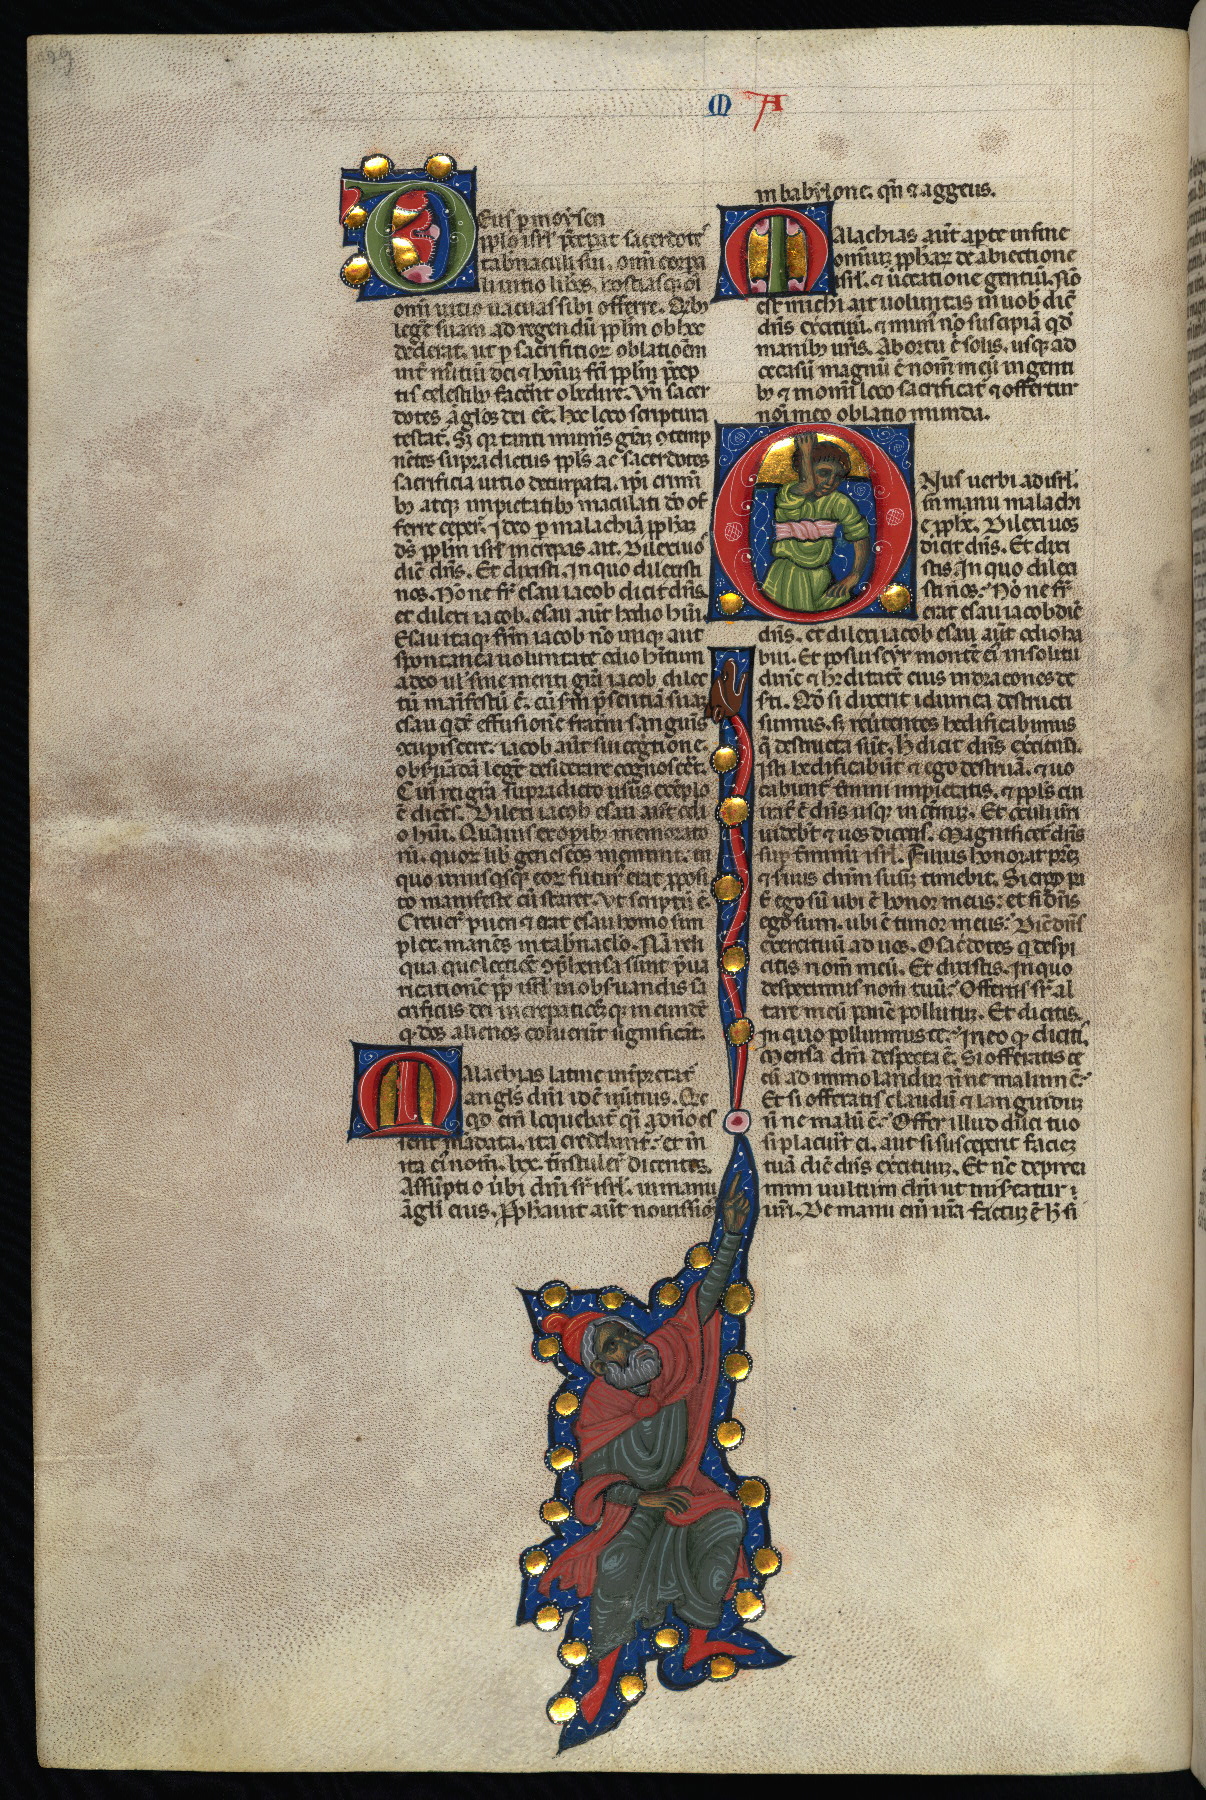 M A
Deus p moysen
pplo isrl' p̄cepat sacerdote
tab̄naculi sui. om̄i corpa
li uitio libos. hostiasq; ab
om̄i uitio uacuas sibi offerre. Orby
lege suam ad regendū pplm ob hec
dederat. ut p sacrifitior oblatioēm
int̄ nūtiū dei
tis celestiby facerēt obedire. Vn̄ sacer
dotes āglos dei ēē. hec loco scriptura
testat̄. Sz qr tanti mun̄is grāz ɔtemp
nētes supradictus ppls ac sacerdotes
sacrificia uitio deturpata. ipi crimi
by atq; impietatiby maculati dō of
ferre ceper̄. Ideo p malachiā pphaz
ds̄ pplm isrl increpas ait. Dilexi uos
dic̄ dn̄s. Et dixisti. In quo dilexisti
nos. Nōne fr̄ esau iacob dicit dn̄s.
et dilexi iacob. esau aūt hodio hūi.
Esau itaq; frēm iacob nō iniq; aut
spontanea uoluntate odio h̄itum
adeo ul' sine menti grā iacob dilec
tū manifestū ē. cū sm p̄sentiā suaz
esau qd̄ē effusionē fratni sanguis
ɔcupiscere. iacob aūt sui cogtione.
obs̄uādā legē desiderare cognoscer̄et.
Cui rei grā supradicto usus exēplo
ē dicēs. Dilexi iacob esau aūt odi
o hūi. Quāuis eɔpiby memorato
rū. quor lib' geneseos meminit. in
quo unusq̄sq; eor futur' erat pposi
to manifeste cū staret. Vt scriptū ē.
Creuer̄ pueri & erat esau homo sim
plex. manēs in tab̄naclo. Nā reli
qua que lectiōe ɔp̄hensa sunt p̄ua
ricationē ppl isrl' in obs̄uandis sa
crificiis dei increpatiōez q; in eundē
q; dos alienos coluerūt significāt.
Malachias latine int̄pretat̄
angl's dn̄i idē nūtius. Qre
qd' em̄ loquebat̄ q̄si a dn̄o es
sent mādata. ita credebānt̄. et in
ita ei nom̄. lxx. trāstuler̄ dicentes.
Assūptio ūbi dn̄i sr̄ isrl'. in manu
āgli eius. Pphauit aūt nouissimo
in babylone. qn̄ & aggeus.
Malachias aūt apte in fine
om̄iuz pphaz de abiectione
isrl'. & ūocatione gentiū. Nō
est michi ait uoluntas in uob' dic̄
dn̄s exc̄ituū. & mun̄ nō suscipiā qd'
maniby ur̄is. Ab ortu ē solis. usq; ad
occasū magnū ē nom̄ meū in genti
by & in om̄i loco sacrificat̄ & offertur
noi meo oblatio munda.
Onus uerbi ad isrl'.
in manu malachi
e pphe. Dilexi uos
dicit dn̄s. Et dixi
stis. In quo dilexi
sti nos. Nōne fr̄
erat esau iacob dic̄
dn̄s. et dilexi iacob esau aūt odio ha
bui. Et posui seyr montē ei in solitu
dinē & h̄editatē eius in dracones de
sti. Nō si dixerit idumea destructi
sumus. sz reu̅tentes hedificabimus
q̄ destructa sūt. h̄ dicit dn̄s exc̄ituū.
Isti hedificabūt & ego destruā. & uo
cabunt̄ t̄mini impietatis. & ppls cui
irat' ē dn̄s usq; in et̄nuz. Et oculi ur̄i
uidebt̄ & uos dicetis. Magnificet̄ dn̄s
sup t̄minū isrl'. Filius honorat pr̄ez
& suus dn̄m suuz timebit. Si ergo pa
t̄ ego sū ubi ē honor meus: et si dn̄s
ego sum. ubi ē timor meus: Dic̄ dn̄s
exercituū ad uos. O sac̄dotes q despi
citis nom̄ meū. Et dixistis. In quo
despeximus nom̄ tuū: Offertis sr̄ al
tare meū panē pollutuz. Et dicitis.
In quo polluimus te: In eo q̄ dicitis
Mensa dn̄i despecta ē. Si offeratis ce
cū ad immolanduz n̄ne malum ē:
Et si offeratis claudū & languiduz
n̄ne malū ē: Offer illud duci tuo
si placuit ei. aut si susceperit faciez
tuā dic̄ dn̄s exc̄ituuz. Et nc̄ depreci
mini uultum dn̄i ut misereatur
ur̄i. De manu em̄ ur̄a factuz ē h̄ si